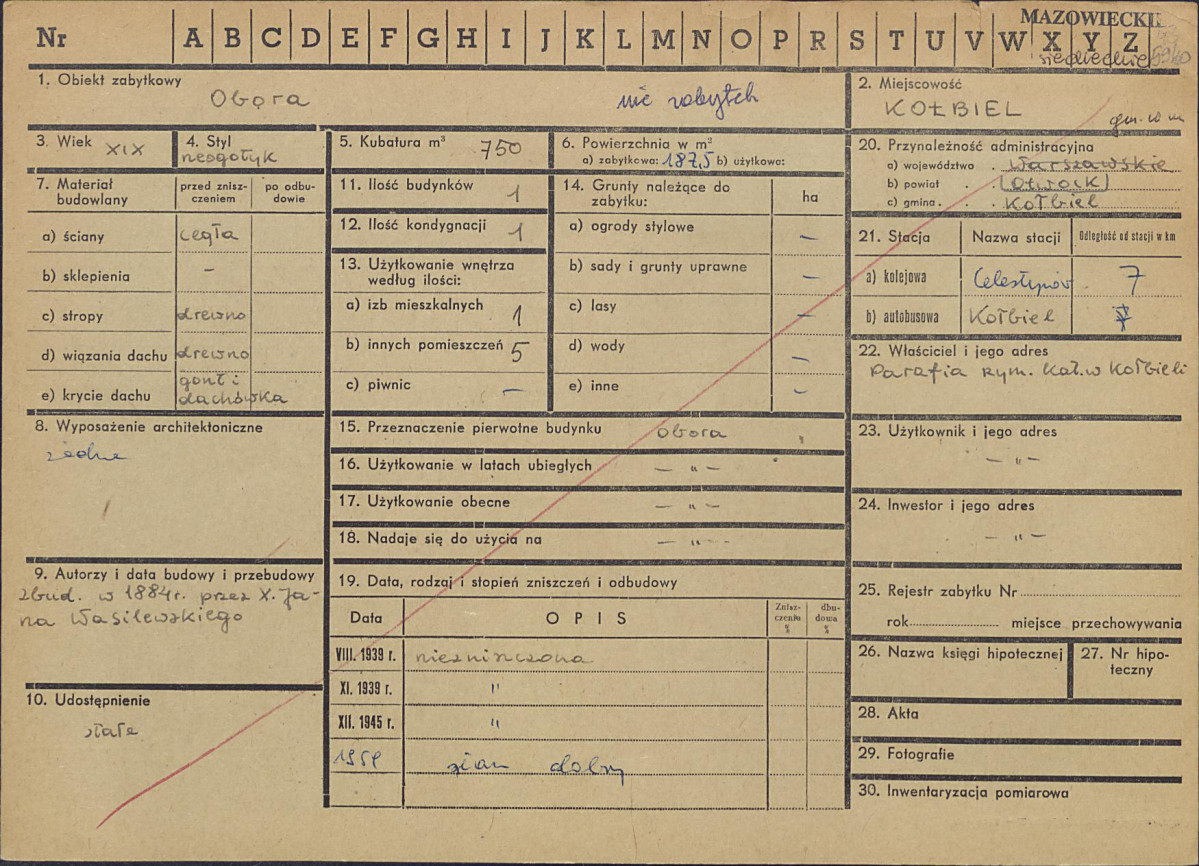 MAZOWIECKIE
Nr A B C D E F G H I J K L M N O P R S T U V W X Y Z
siedleckie
1. Obiekt zabytkowy
Obora nie zabytek
2. Miejscowość
KOŁBIEL
gm. w m
3. Wiek XIX
4. Styl
neogotyk
5. Kubatura m³ 750
6. Powierzchnia w m²
a) zabytkowa: 187,5 b) użytkowa:
7. Materiał budowlany
przed zniszczeniem
po odbudowie
a) ściany cegła
b) sklepienia –
c) stropy drewno
d) wiązania dachu drewno
e) krycie dachu gont i dachówka
8. Wyposażenie architektoniczne
żadne
9. Autorzy i data budowy i przebudowy
zbud. w 1884r. przez X. Ja-
na Wasilewskiego
10. Udostępnienie
stałe
11. Ilość budynków 1
12. Ilość kondygnacji 1
13. Użytkowanie wnętrza
według ilości:
a) izb mieszkalnych 1
b) innych pomieszczeń 5
c) piwnic –
14. Grunty należące do
zabytku: ha
a) ogrody stylowe –
b) sady i grunty uprawne –
c) lasy –
d) wody –
e) inne –
15. Przeznaczenie pierwotne budynku obora
16. Użytkowanie w latach ubiegłych — " —
17. Użytkowanie obecne — " —
18. Nadaje się do użycia na — " —
19. Data, rodzaj i stopień zniszczeń i odbudowy
Data OPIS Zniszczenia % dbudowa %
VIII. 1939 r. niezniszczona
XI. 1939 r. "
XII. 1945 r. "
1959 stan dobry
20. Przynależność administracyjna
a) województwo . Warszawskie
b) powiat . (Otwock)
c) gmina . . Kołbiel
21. Stacja Nazwa stacji Odległość od stacji w km
a) kolejowa Celestynów 7
b) autobusowa Kołbiel
22. Właściciel i jego adres
Parafia rzym. kat. w Kołbieli
23. Użytkownik i jego adres
— " —
24. Inwestor i jego adres
— " —
25. Rejestr zabytku Nr
rok miejsce przechowywania
26. Nazwa księgi hipotecznej
27. Nr hipo-
teczny
28. Akta
29. Fotografie
30. Inwentaryzacja pomiarowa